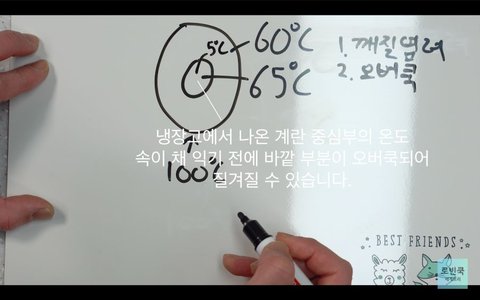 5℃
60℃
65℃
1. 깨질염려
2. 오버쿡
냉장고에서 나온 계란 중심부의 온도
속이 채 익기 전에 바깥 부분이 오버쿡되어
질겨질 수 있습니다.
BEST FRIENDS
로빈쿡